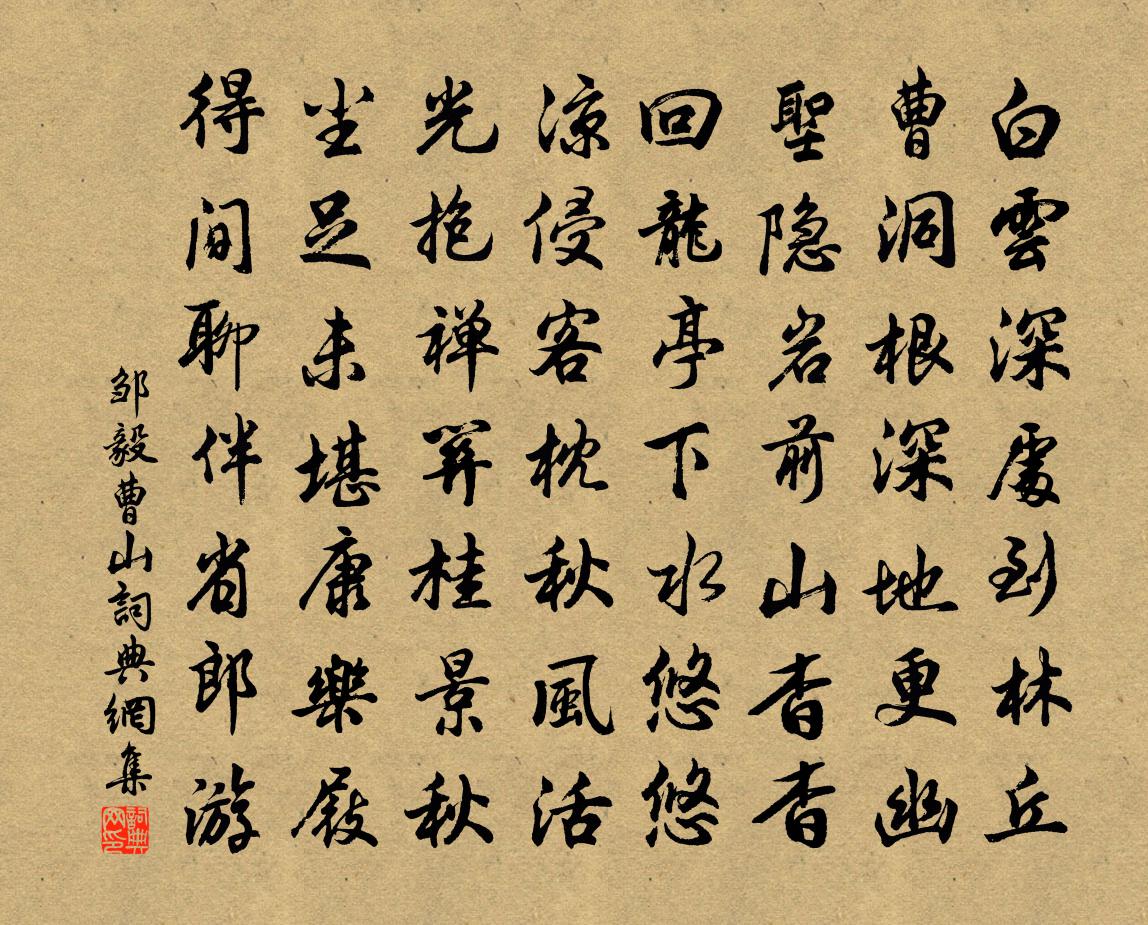 白雲深處到林丘
曹洞根深地更幽
聖隐岩前山杳杳
回龍亭下水悠悠
涼侵客枕秋風活
光抱禅関桂景秋
尘足未堪康樂屐
得间聊伴省郎游
邹毅曹山詞典網集
詞典网印